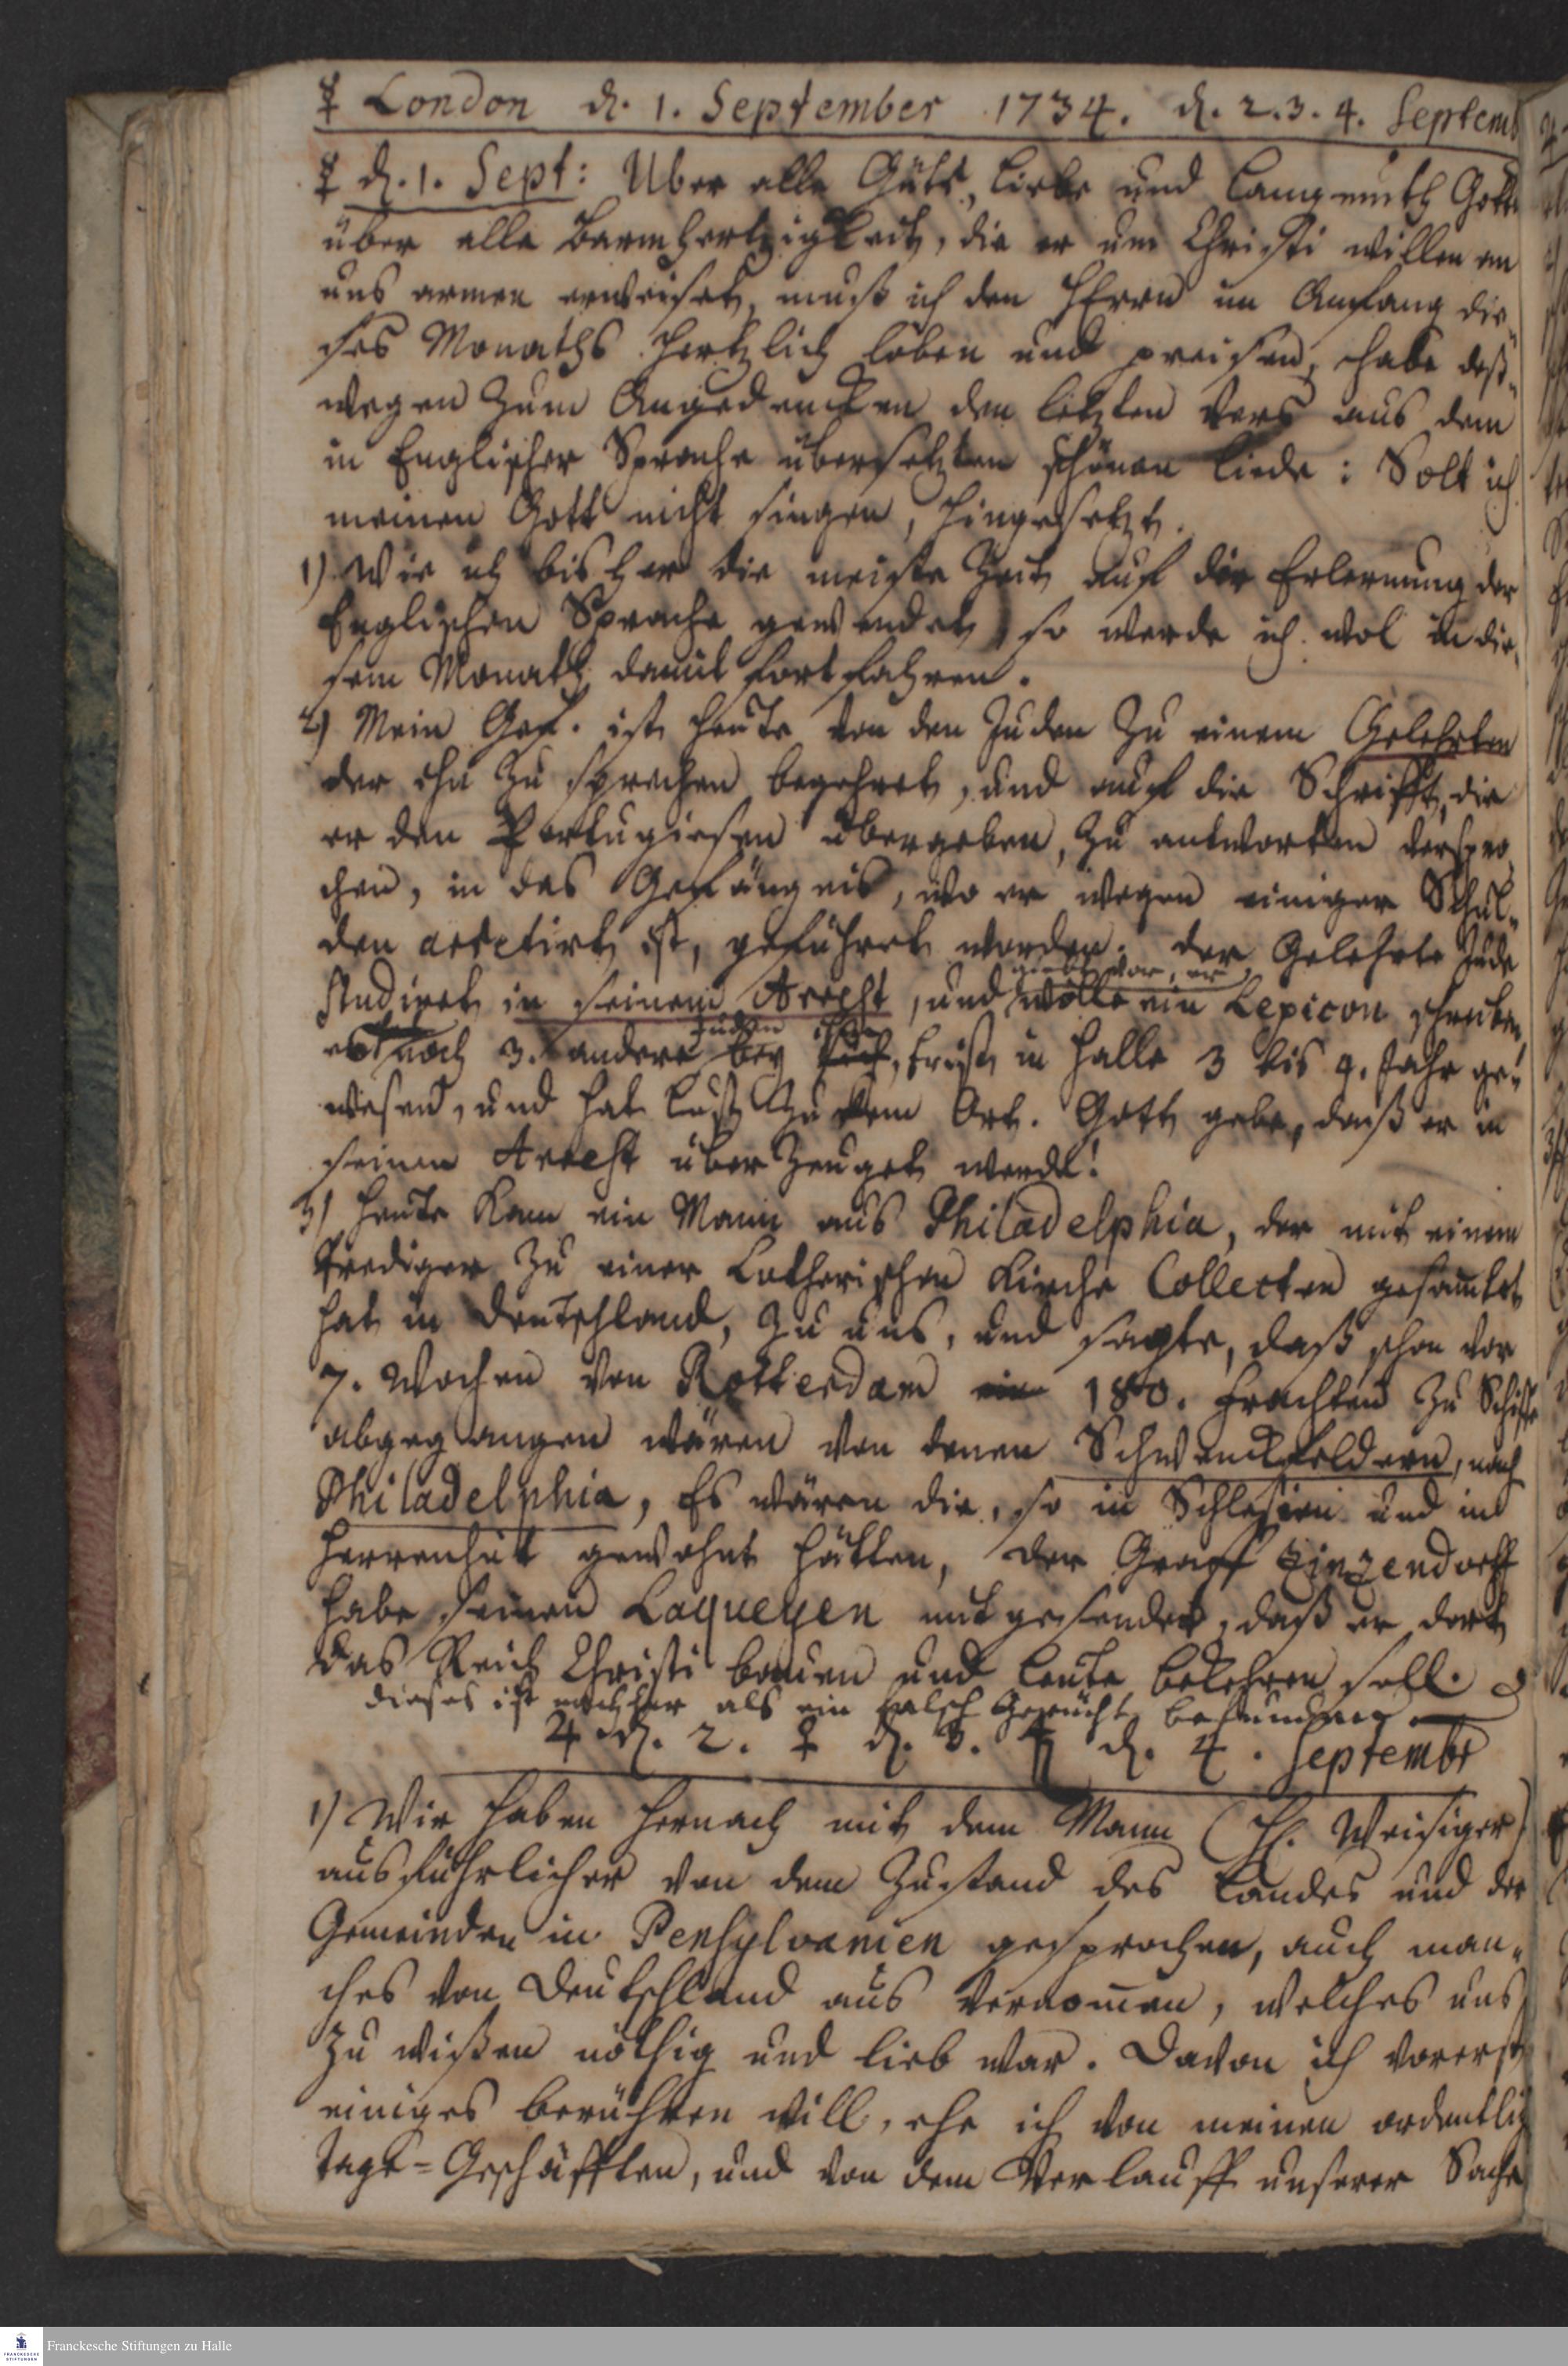 ☿ London d. 1. September 1734. d. 2. 3. 4. Septemb
☿ d. 1. Sept: Uber alle Güte, Liebe und Langmuth Gottes
über alle Barmhertzigkeit, die er um Christi willen an
uns armen erweiset, muß ich den HErrn im Anfang die-
ses Monaths hertzlich loben und preisen, habe deß-
wegen zum Angedencken den letzten Vers aus dem
in Englischer Sprache übersetzten schönen Liede: Solt ich
meinen Gott nicht singen, hingesetzt.
1) Wie ich bisher die meiste Zeit auf die Erlernung der
Englischen Sprache gewendet, so werde ich wol in die-
sem Monath damit fortfahren.
2) Mein Gef. ist heute von den Juden zu einem Gelehrten
der ihn zu sprechen begehret, und auf die Schrifft, die
er den Portugiesen übergeben, zu antworten verspro-
chen, in das Gefängnis, wo er wegen einiger Schul-
den arretirt ist, geführet worden. Der Gelehrte Jude
studiret in seinem Arrest, und giebt vor, er wolle ein Lexicon schreiben,
noch 3. andere Juden bey ihm, Er ist in Halle 3 bis 4. Jahr ge-
wesen, und hat Lust zu dem Ort. Gott gebe, daß er in
seinem Arrest überzeuget werde!
3) Heute kam ein Mann aus Philadelphia, der mit einem
Prediger zu einer Lutherischen Kirche Collecten gesamlet
hat in Deutschland, zu uns, und sagte, daß schon vor
7. Wochen von Rotterdam 180. Frachten zu Schiffe
abgegangen wären von denen Schwenckfeldern, nach
Philadelphia, Es wären die, so in Schlesien und in
Herrenhut gewohnt hätten, der Graff Zinzendorff
habe seinen Laqueyen mit gesendet, daß er dort
das Reich Christi bauen und Leute bekehren soll.
dieses ist nachher als ein falsch Gerücht befunden
♃ d. 2. ♀ d. 3. ♄ d. 4. Septembr
1) Wir haben hernach mit dem Mann (H. Weisiger)
ausführlicher von dem Zustand des Landes und der
Gemeinden in Pensylvanien gesprochen, auch man-
ches von Deutschland aus vernommen, welches uns
zu wißen nöthig und lieb war. Davon ich vorerst
einiges berühren will, ehe ich von meinen ordentlich
Tage-Geschäfften, und von dem Verlauff unserer Sache
Franckesche Stiftungen zu Halle